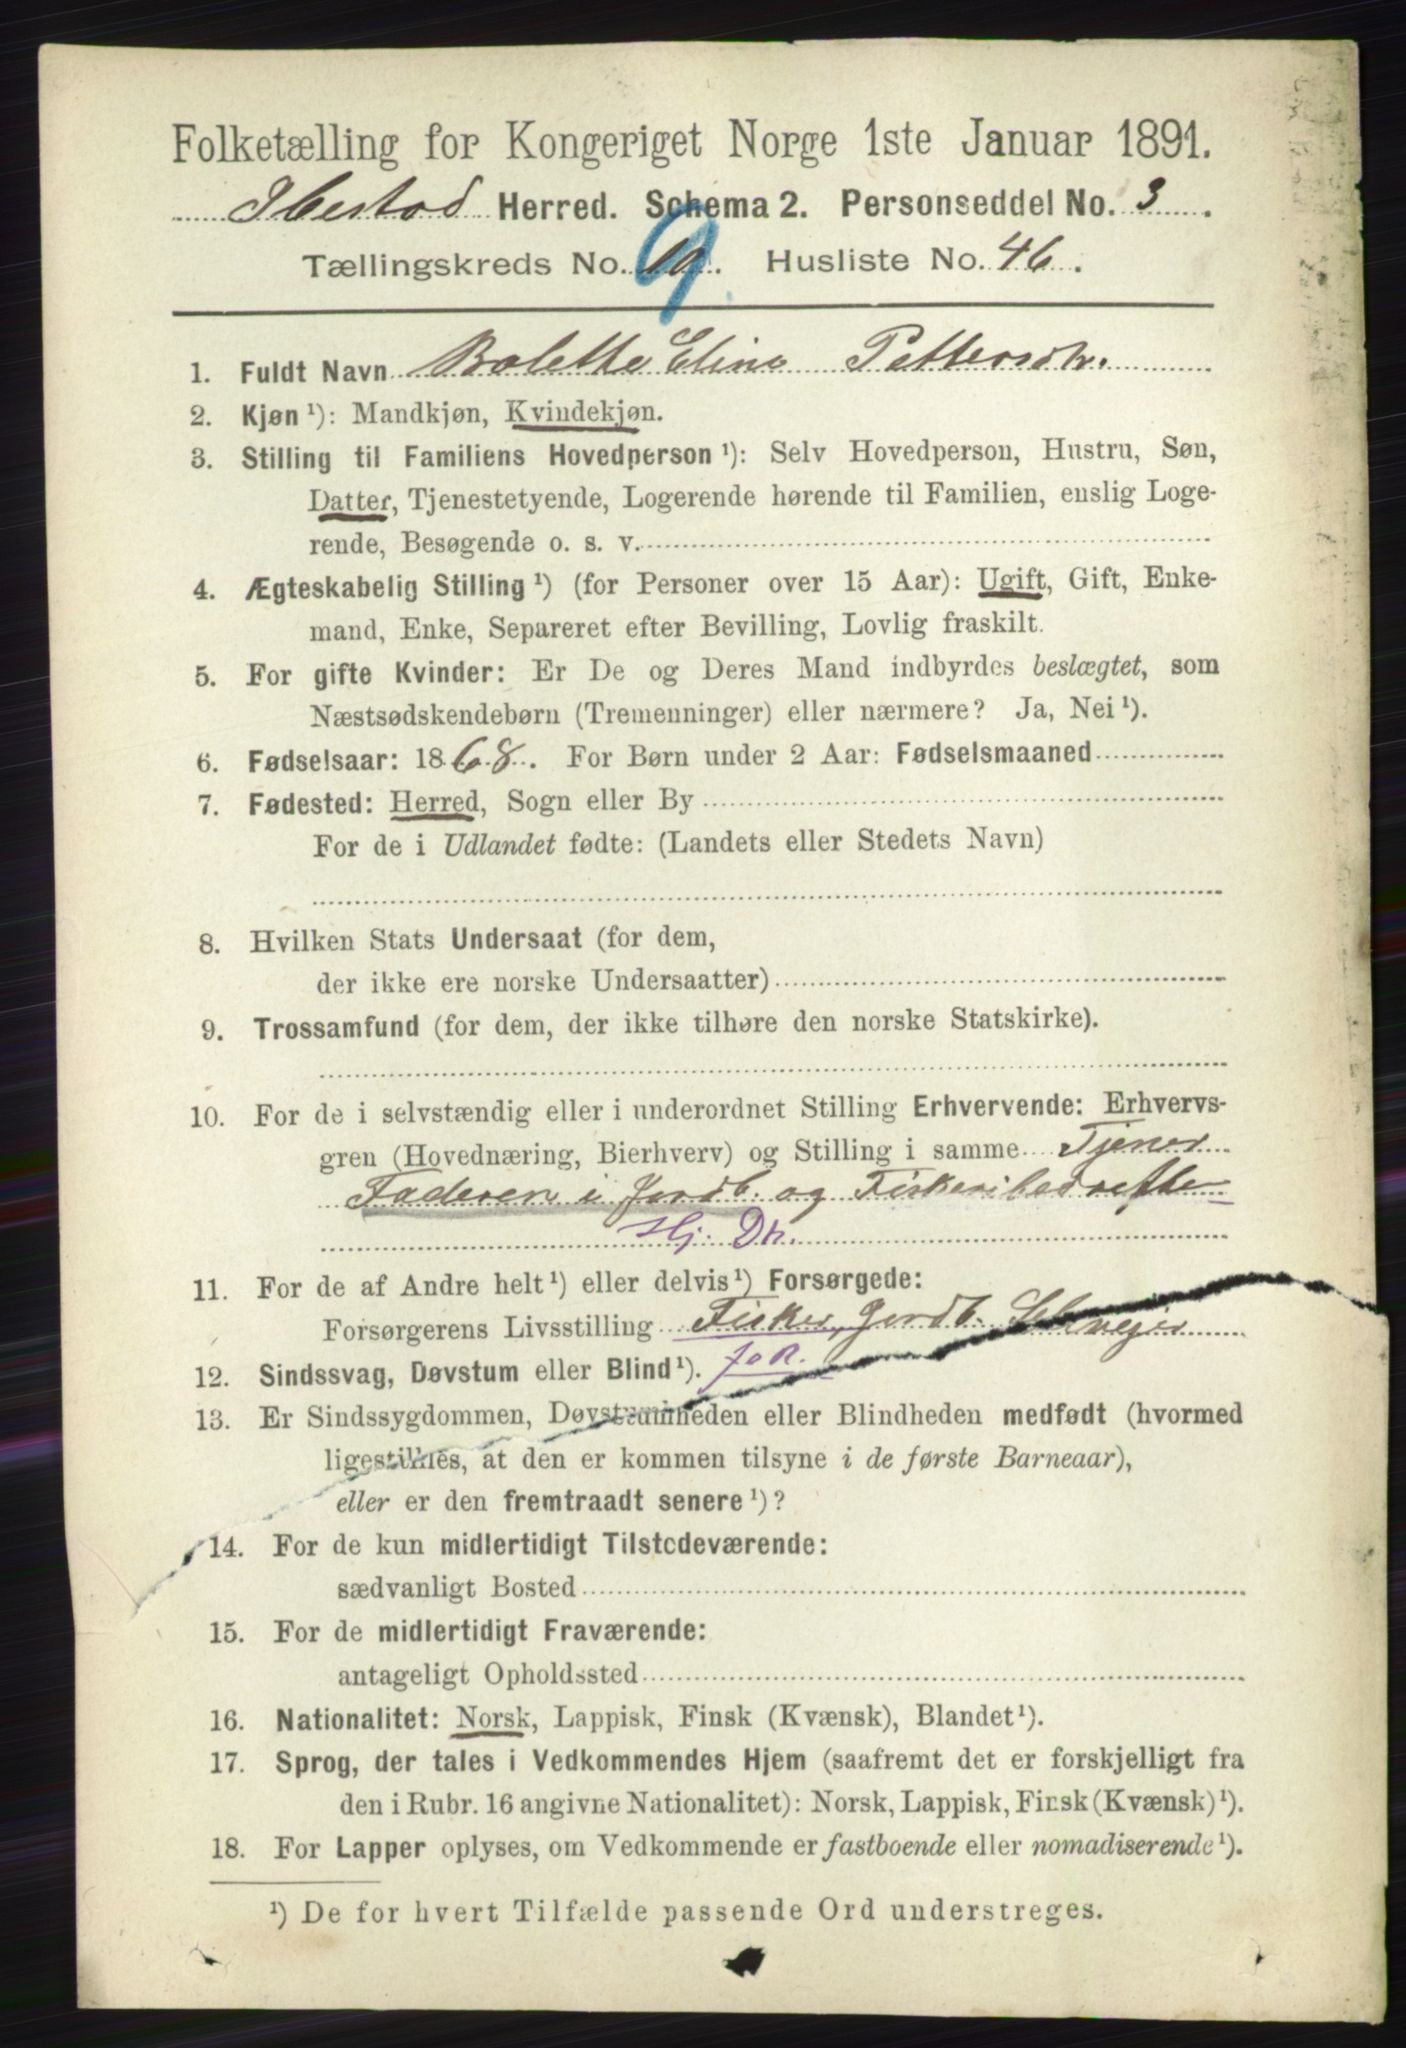 Folketælling for Kongeriget Norge 1ste Januar 1891.
Ibestad Herred. Schema 2. Personseddel No. 3.
Tællingskreds No. 10. 9 Husliste No. 46.
1. Fuldt Navn Bolette Eline Pettersdtr.
2. Kjøn ¹): Mandkjøn, Kvindekjøn.
3. Stilling til Familiens Hovedperson ¹): Selv Hovedperson, Hustru, Søn,
Datter, Tjenestetyende, Logerende hørende til Familien, enslig Loge-
rende, Besøgende o. s. v.
4. Ægteskabelig Stilling ¹) (for Personer over 15 Aar): Ugift, Gift, Enke-
mand, Enke, Separeret efter Bevilling, Lovlig fraskilt.
5. For gifte Kvinder: Er De og Deres Mand indbyrdes beslægtet, som
Næstsødskendebørn (Tremenninger) eller nærmere? Ja, Nei ¹).
6. Fødselsaar: 1868. For Børn under 2 Aar: Fødselsmaaned
7. Fødested: Herred, Sogn eller By
For de i Udlandet fødte: (Landets eller Stedets Navn)
8. Hvilken Stats Undersaat (for dem,
der ikke ere norske Undersaatter)
9. Trossamfund (for dem, der ikke tilhøre den norske Statskirke).
10. For de i selvstændig eller i underordnet Stilling Erhvervende: Erhvervs-
gren (Hovednæring, Bierhverv) og Stilling i samme Tjener
Faderen i Jordb. og Fiskeribedrifte
Hj. Dtr.
11. For de af Andre helt ¹) eller delvis ¹) Forsørgede:
Forsørgerens Livsstilling Fisker, Jordb. Selveier
12. Sindssvag, Døvstum eller Blind ¹).
13. Er Sindssygdommen, Døvstumheden eller Blindheden medfødt (hvormed
ligestilles, at den er kommen tilsyne i de første Barneaar),
eller er den fremtraadt senere ¹)?
14. For de kun midlertidigt Tilstedeværende:
sædvanligt Bosted
15. For de midlertidigt Fraværende:
antageligt Opholdssted
16. Nationalitet: Norsk, Lappisk, Finsk (Kvænsk), Blandet ¹).
17. Sprog, der tales i Vedkommendes Hjem (saafremt det er forskjelligt fra
den i Rubr. 16 angivne Nationalitet): Norsk, Lappisk, Finsk (Kvænsk) ¹).
18. For Lapper oplyses, om Vedkommende er fastboende eller nomadiserende ¹).
¹) De for hvert Tilfælde passende Ord understreges.